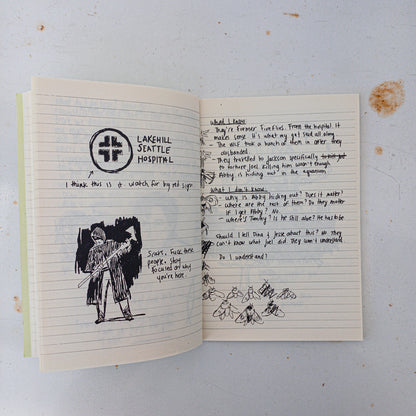 LAKEHILL
SEATTLE
HOSPITAL
I think this is it watch for big red sign
Scars. Fuck these
people. Stay
focused on why
you're here.
What I know
- They're former Fireflies. From the hospital. It
makes sense. It's what my gut said all along.
- The WLF took a bunch of them in after they
disbanded.
- They travelled to Jackson specifically
to torture Joel. Killing him wasn't enough.
- Abby is hiding out in the aquarium
What I don't know
- Why is Abby hiding out? Does it matter?
- Where are the rest of them? Do they matter
if I get Abby? No.
- Where's Tommy? Is he still alive? He has to be.
Should I tell Dina & Jesse about this? No. They
can't know what Joel did. They won't understand.
Do I understand?